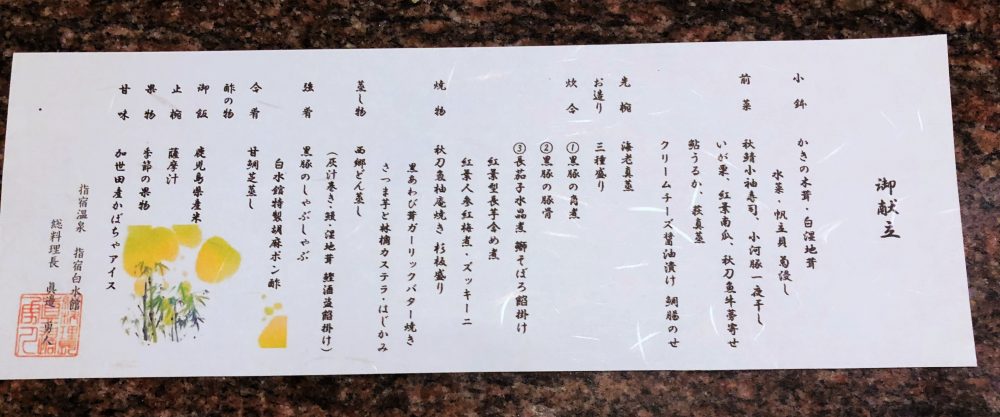 御献立
小鉢 かきの木茸・白湿地茸
水菜・帆立貝 菊浸し
前菜 秋鯖小袖寿司、小河豚一夜干し
いが栗、紅葉南瓜、秋刀魚牛蒡寄せ
鮎うるか、萩真蒸
クリームチーズ醤油漬け 鯛腸のせ
先椀 海老真蒸
お造り 三種盛り
炊合 ①黒豚の角煮
②黒豚の豚骨
③長茄子水晶煮 鰤そぼろ餡掛け
紅葉型長芋含め煮
紅葉人参紅梅煮・ズッキーニ
焼物 秋刀魚柚庵焼き 杉板盛り
黒あわび茸ガーリックバター焼き
さつま芋と林檎カステラ・はじかみ
蒸し物 西郷どん蒸し
(灰汁巻き・鰻・湿地茸 鰹酒盗餡掛け)
強肴 黒豚のしゃぶしゃぶ
白水館特製胡麻ポン酢
合肴 甘鯛芝蒸し
酢の物
御飯 鹿児島県産米
止椀 薩摩汁
果物 季節の果物
甘味 加世田産かぼちゃアイス
指宿温泉 指宿白水館
総料理長 眞邉 勇人